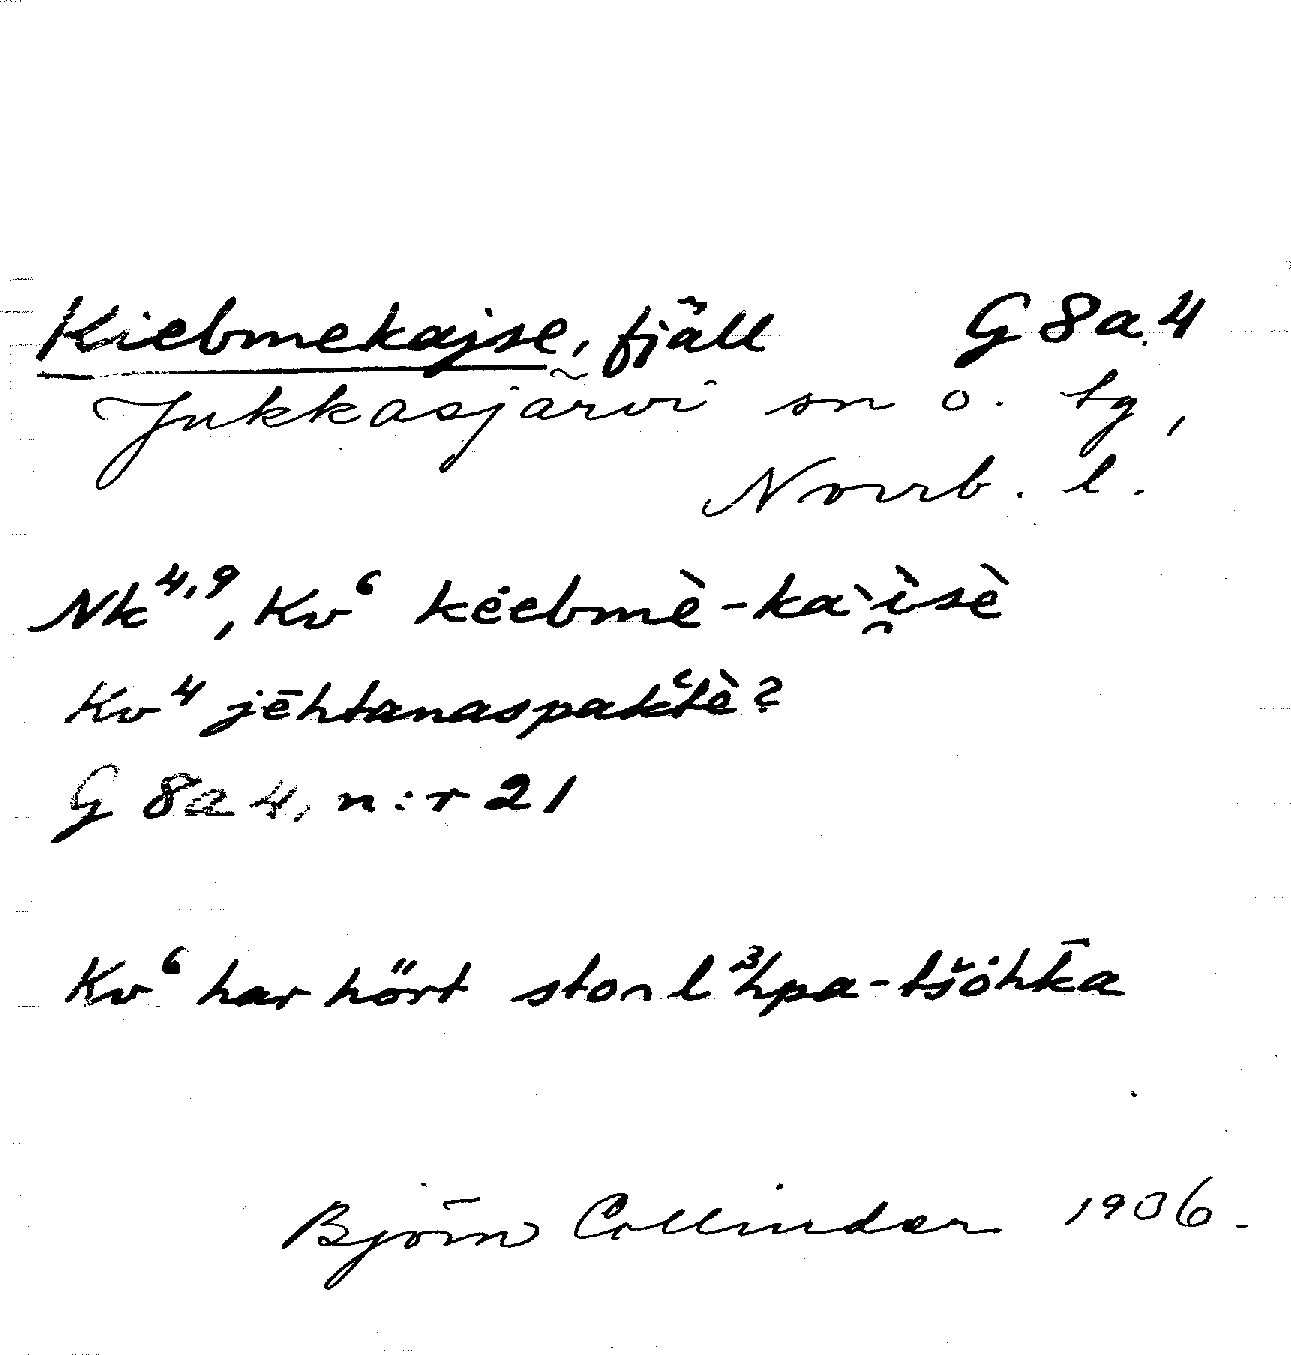 Kiebmekajse, fjäll G8a4
Jukkasjärvi sn o. tg,
Norrb. l.
Nk⁴,⁹, Kv⁶ kėebmè-kài̯sè
Kv⁴ jēhtanaspaktè?
G 8a 4, n:r 21
Kv⁶ har hört
Björn Collinder 1936.